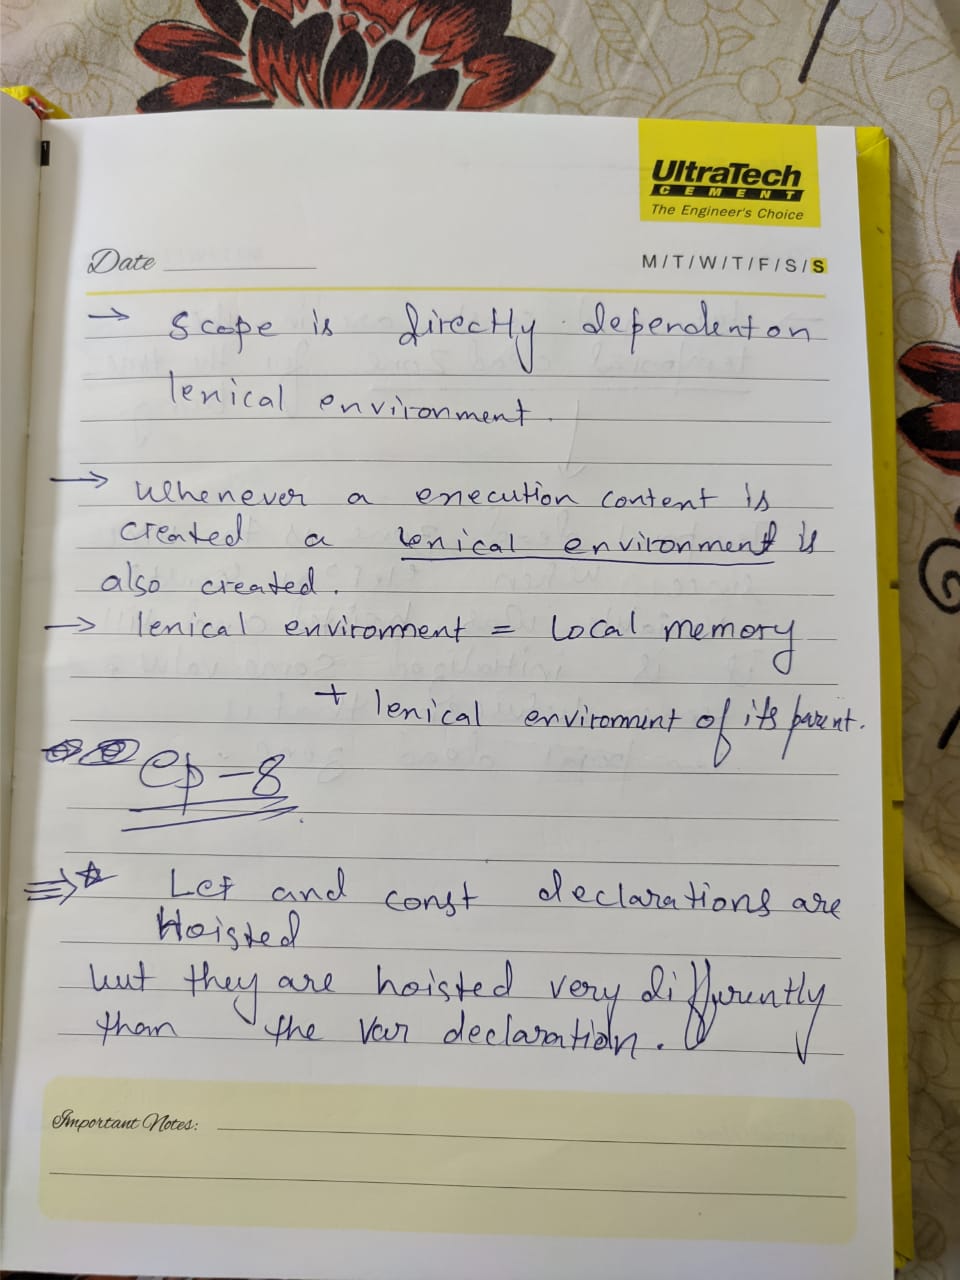 UltraTech
CEMENT
The Engineer's Choice
Date
M/T/W/T/F/S/S
→ Scope is directly dependent on
lexical environment.
→ Whenever a execution context is
created a lexical environment is
also created.
→ lexical environment = Local memory
+ lexical environment of its parent.
Ep-8
⇒ ☆ Let and const declarations are
Hoisted
but they are hoisted very differently
than the var declaration.
Important Notes: